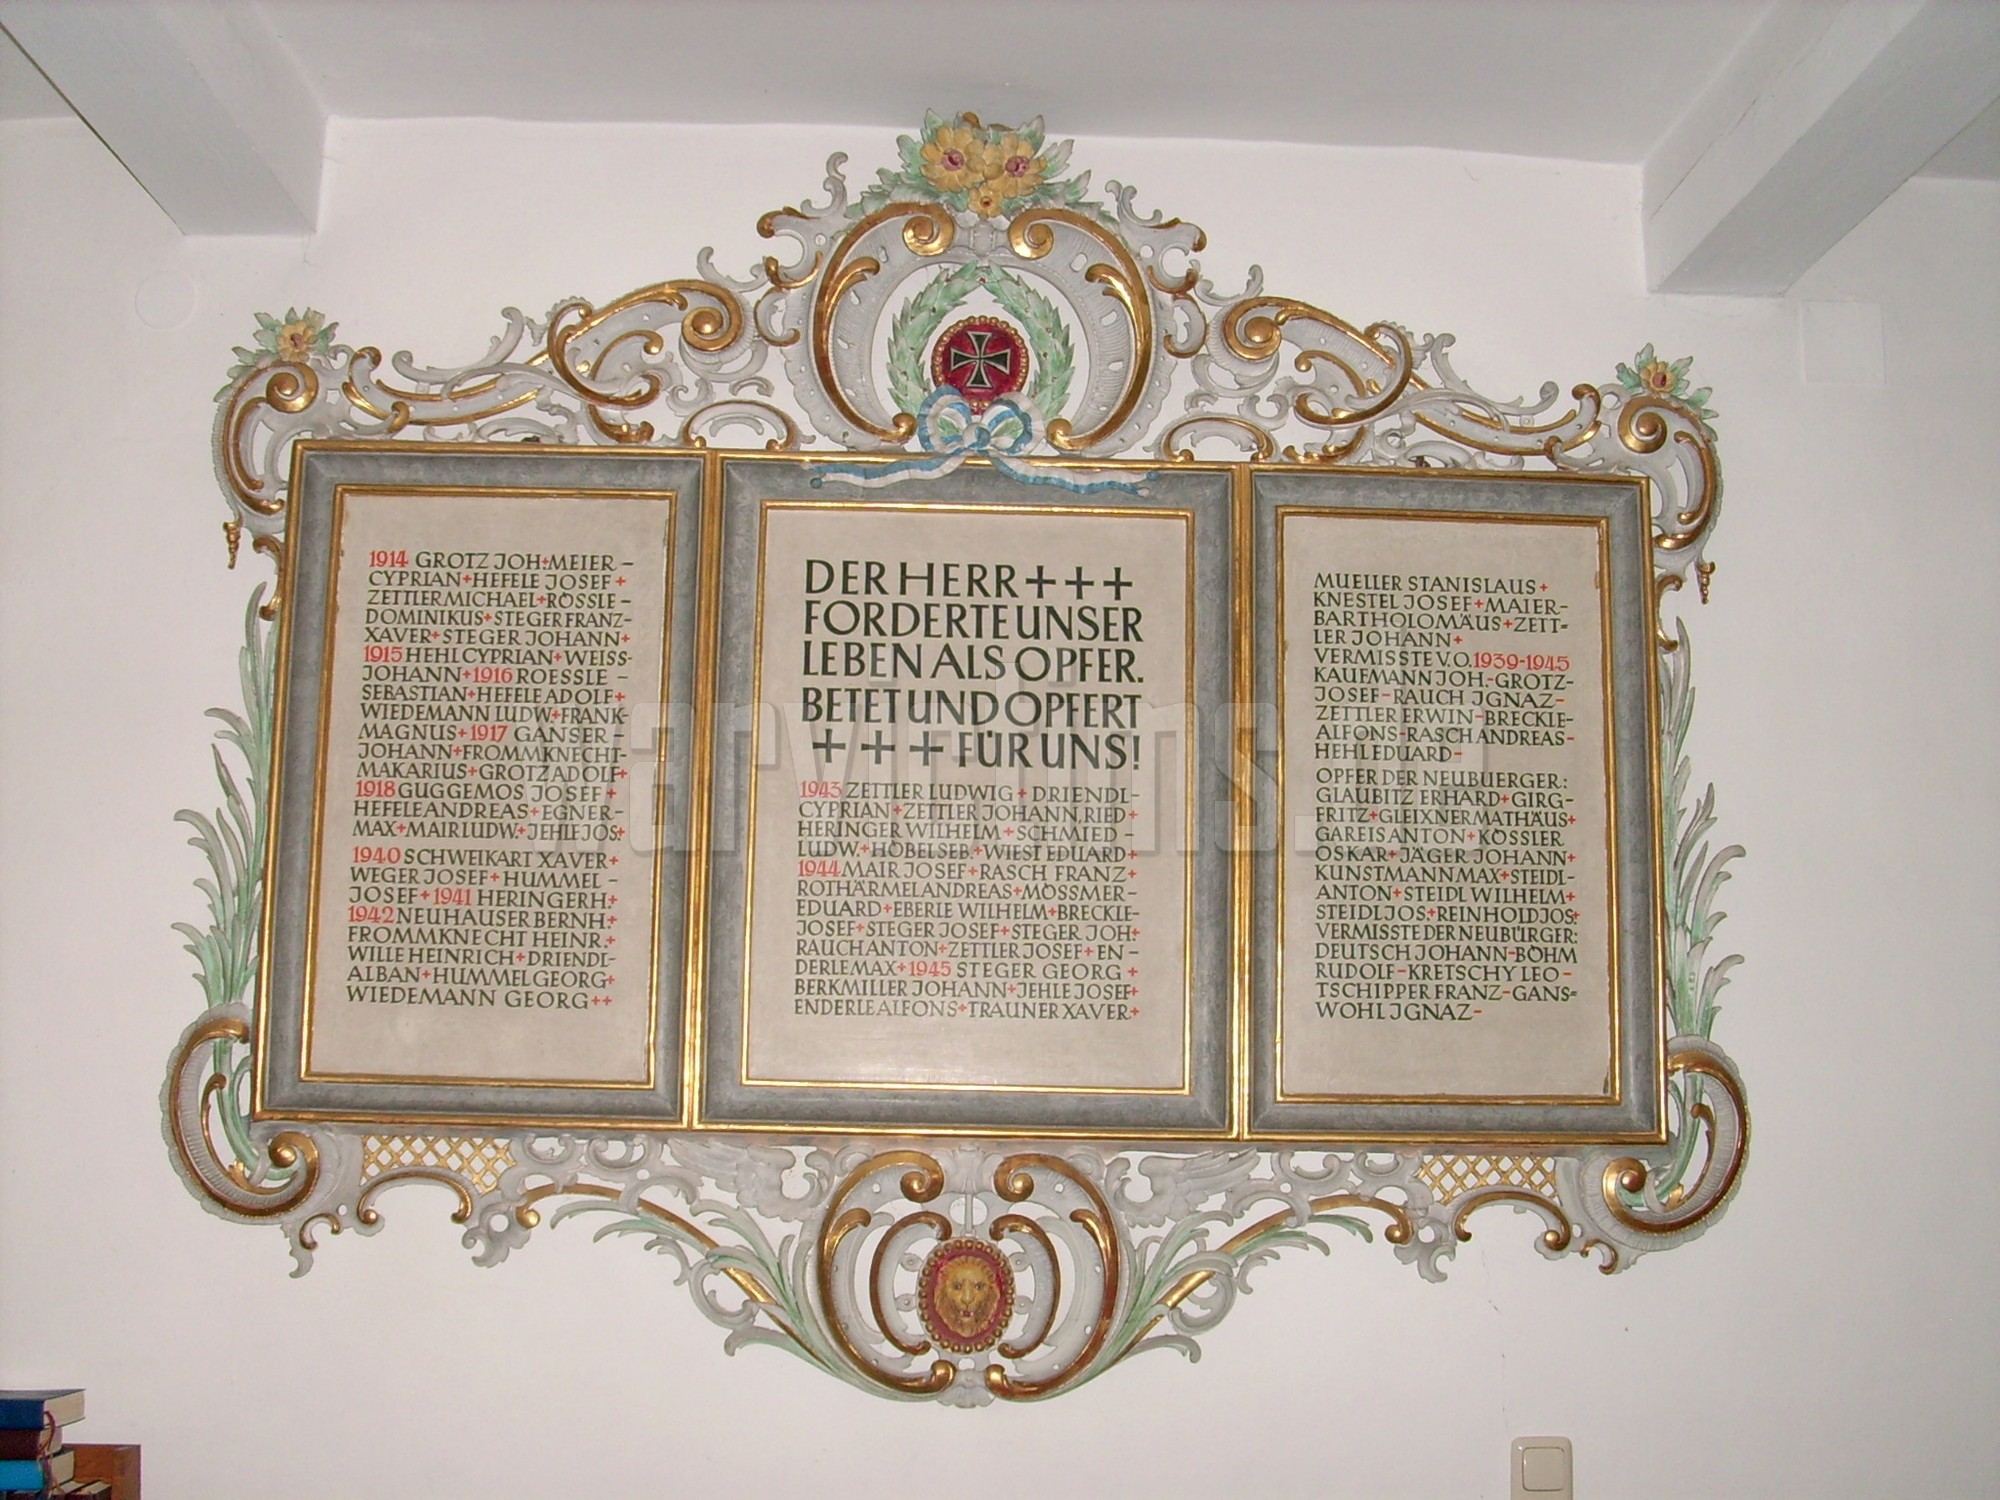 1914 GROTZ JOH+MEIER-
CYPRIAN+HEFELE JOSEF+
ZETTLER MICHAEL+RÖSSLE-
DOMINIKUS+STEGER FRANZ-
XAVER+STEGER JOHANN+
1915 HEHL CYPRIAN+WEISS-
JOHANN+1916 ROESSLE-
SEBASTIAN+HEFELE ADOLF+
WIEDEMANN LUDW.+FRANK-
MAGNUS+1917 GANSER-
JOHANN+FROMMKNECHT-
MAKARIUS+GROTZ ADOLF+
1918 GUGGEMOS JOSEF+
HEFELE ANDREAS+EGNER-
MAX+MAIR LUDW.+JEHLE JOS+
1940 SCHWEIKART XAVER+
WEGER JOSEF+HUMMEL-
JOSEF+1941 HERINGER H.+
1942 NEUHAUSER BERNH.+
FROMMKNECHT HEINR.+
WILLE HEINRICH+DRIENDL-
ALBAN+HUMMEL GEORG+
WIEDEMANN GEORG++
DER HERR+++
FORDERTE UNSER
LEBEN ALS OPFER.
BETET UND OPFERT
+++FÜR UNS!
1943 ZETTLER LUDWIG+DRIENDL-
CYPRIAN+ZETTLER JOHANN, RIED+
HERINGER WILHELM+SCHMIED-
LUDW.+HÖBEL SEB.+WIEST EDUARD+
1944 MAIR JOSEF+RASCH FRANZ+
ROTHÄRMEL ANDREAS+MÖSSMER-
EDUARD+EBERLE WILHELM+BRECKLE-
JOSEF+STEGER JOSEF+STEGER JOH.+
RAUCH ANTON+ZETTLER JOSEF+EN-
DERLE MAX+1945 STEGER GEORG+
BERKMILLER JOHANN+JEHLE JOSEF+
ENDERLE ALFONS+TRAUNER XAVER+
MUELLER STANISLAUS+
KNESTEL JOSEF+MAIER-
BARTHOLOMÄUS+ZETT-
LER JOHANN+
VERMISSTE V.O. 1939-1945
KAUFMANN JOH.-GROTZ-
JOSEF-RAUCH JGNAZ-
ZETTLER ERWIN-BRECKLE-
ALFONS-RASCH ANDREAS-
HEHL EDUARD-
OPFER DER NEUBUERGER:
GLAUBITZ ERHARD+GIRG-
FRITZ+GLEIXNER MATHÄUS+
GAREIS ANTON+KÖSSLER
OSKAR+JÄGER JOHANN+
KUNSTMANN MAX+STEIDL-
ANTON+STEIDL WILHELM+
STEIDL JOS.+REINHOLD JOS.+
VERMISSTE DER NEUBÜRGER:
DEUTSCH JOHANN-BÖHM
RUDOLF-KRETSCHY LEO-
TSCHIPPER FRANZ-GANS-
WOHL JGNAZ-